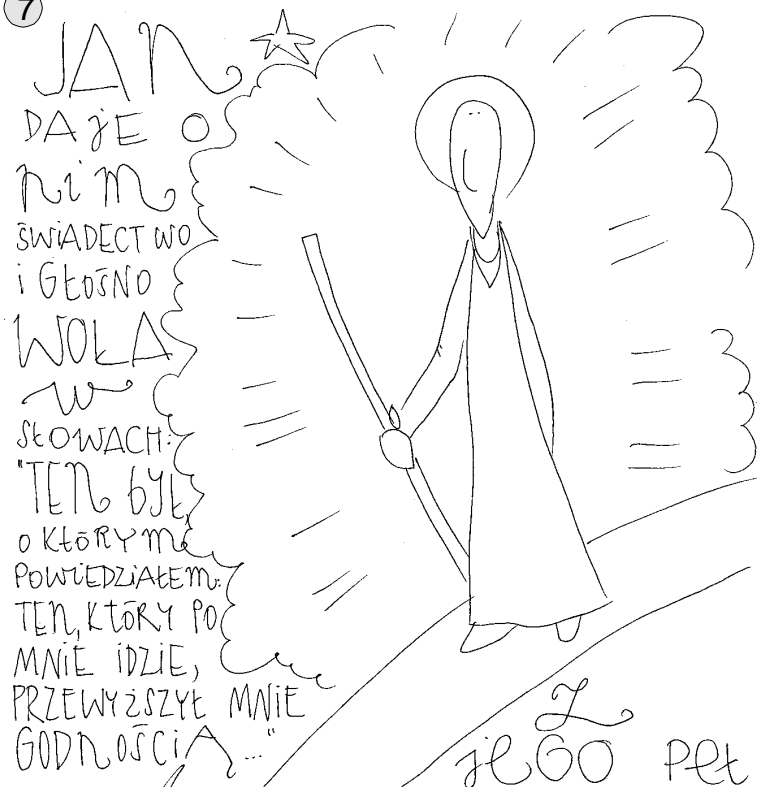 7
JAN
DAJE O
NIM
ŚWIADECTWO
i GŁOŚNO
WOŁA
W
SŁOWACH:
"TEN BYŁ,
O KTÓRYM
POWIEDZIAŁEM:
TEN, KTÓRY PO
MNIE IDZIE,
PRZEWYŻSZYŁ MNIE
GODNOŚCIĄ..."
Z
JEGO PEŁ